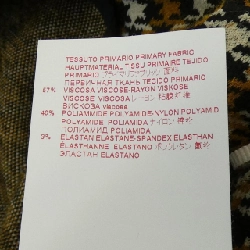 TESSUTO PRIMARIO PRIMARY FABRIC
HAUPTMATERIAL TISSU PRIMAIRE TEJIDO
PRIMARIO
ПЕРВИЧНАЯ ТКАНЬ TECIDO PRIMARIO
VISCOSA VISCOSE-RAYON VISKOSE
VISCOSE VISCOSA レーヨン
ВИСКОЗА VISCOSE
40% POLIAMMIDE POLYAMIDE-NYLON POLYAMID
POLYAMIDE POLIAMIDA ナイロン
ПОЛИАМИД POLIAMIDA
ELASTAN ELASTANE-SPANDEX ELASTHAN
ELASTHANNE ELASTANO ポリウレタン
ЭЛАСТАН ELASTANO